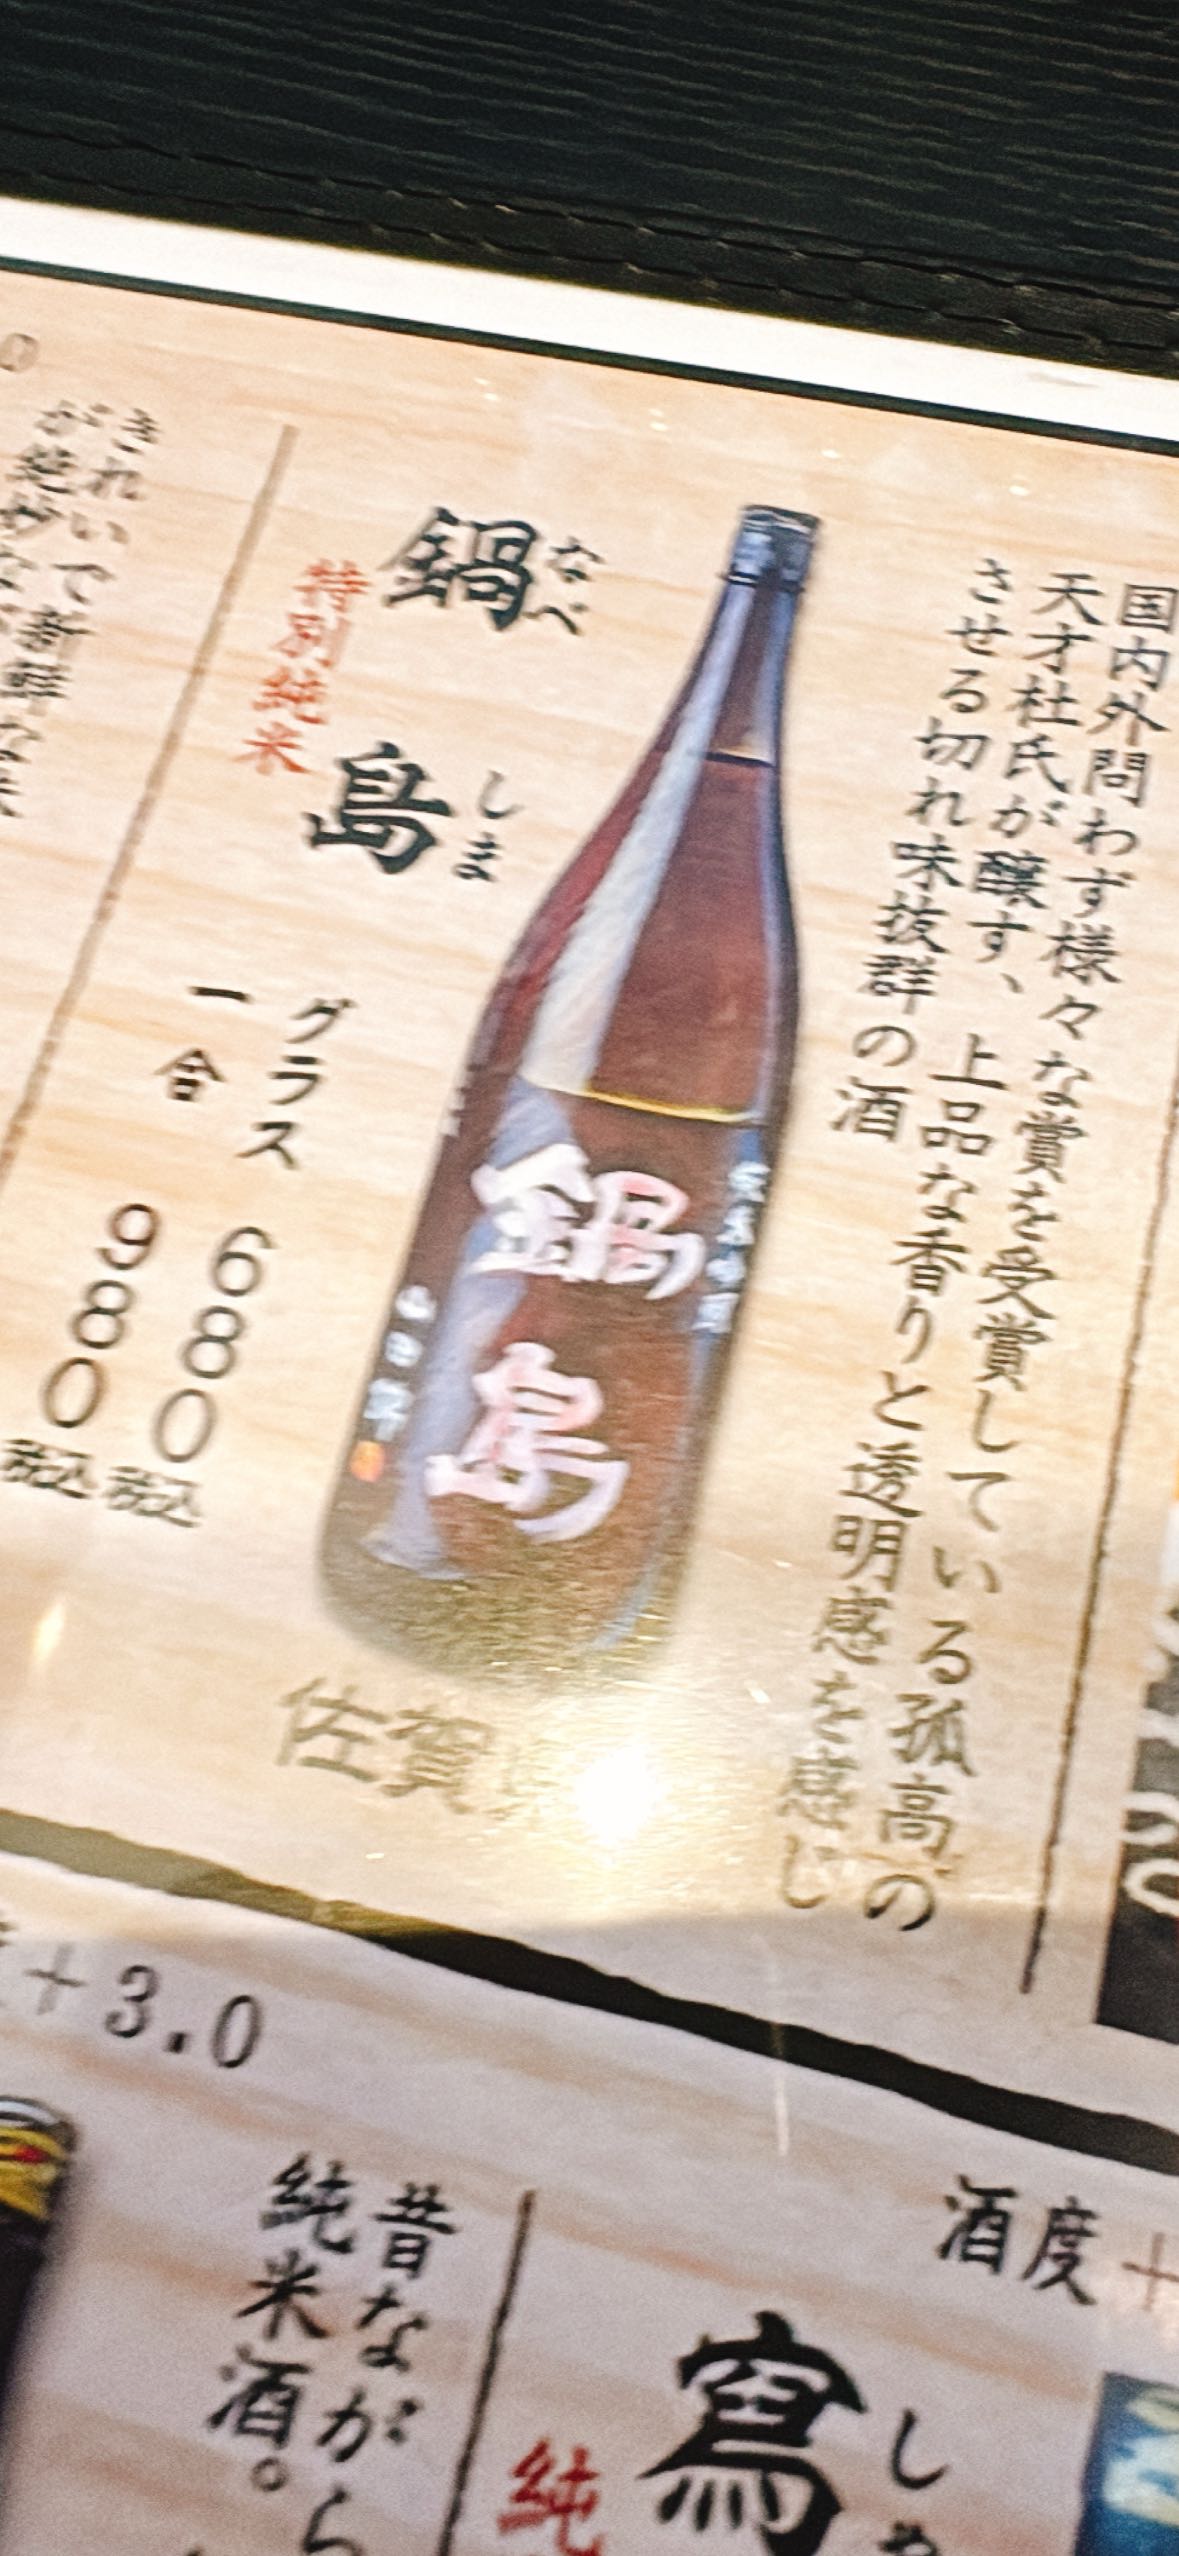 国内外問わず様々な賞を受賞している孤高の
天才杜氏が醸す、上品な香りと透明感を感じ
させる切れ味抜群の酒
鍋島
なべ
しま
特別純米
グラス 680 税込
一合 980 税込
鍋島
佐賀
きれいで新鮮な
が絶妙な
0
+3.0
酒度+
しゃ
寫
純
昔ながら
純米酒。